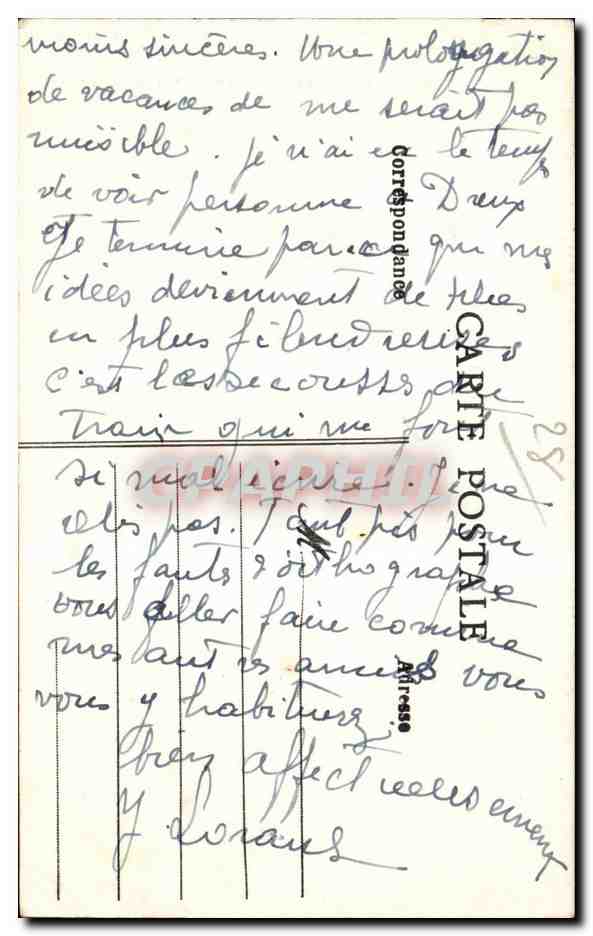 moins sincères. Une prolongation
de vacances de me serait pas
nuisible. je n'ai eu le temps
de voir personne à Dreux
et je termine parce que mes
idées deviennent de plus
en plus filandreuses
c'est les secousses du
train qui me font
si mal écrire. Je ne
relis pas. Tant pis pour
les fautes d'orthographe
vous aller faire comme
mes autres amies vous
vous y habituerez
bien affectueusement
Y
CARTE POSTALE
Correspondance
Adresse
M
28
CPAPHIL